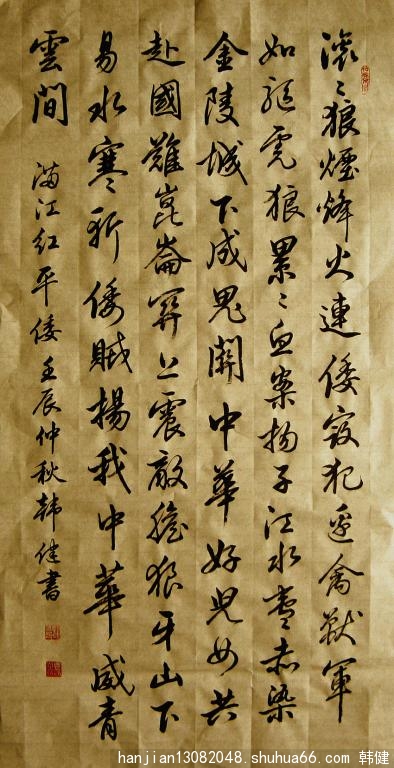 滚〻狼煙烽火連倭寇犯邊禽獸軍
如狼虎狼累〻血案揚子江水盡赤染
金陵城下成鬼關中華好兒女共
赴國難崑崙關上震敵膽狼牙山下
易水寒斬倭賊揚我中華威青
雲間
满江红平倭壬辰仲秋韩健書
hanjian13082048.shuhua66.com 韩健